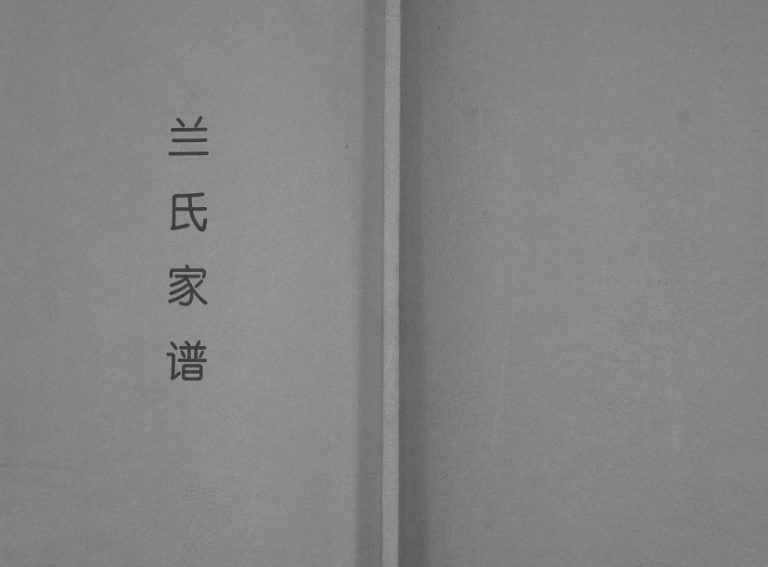 兰氏家谱